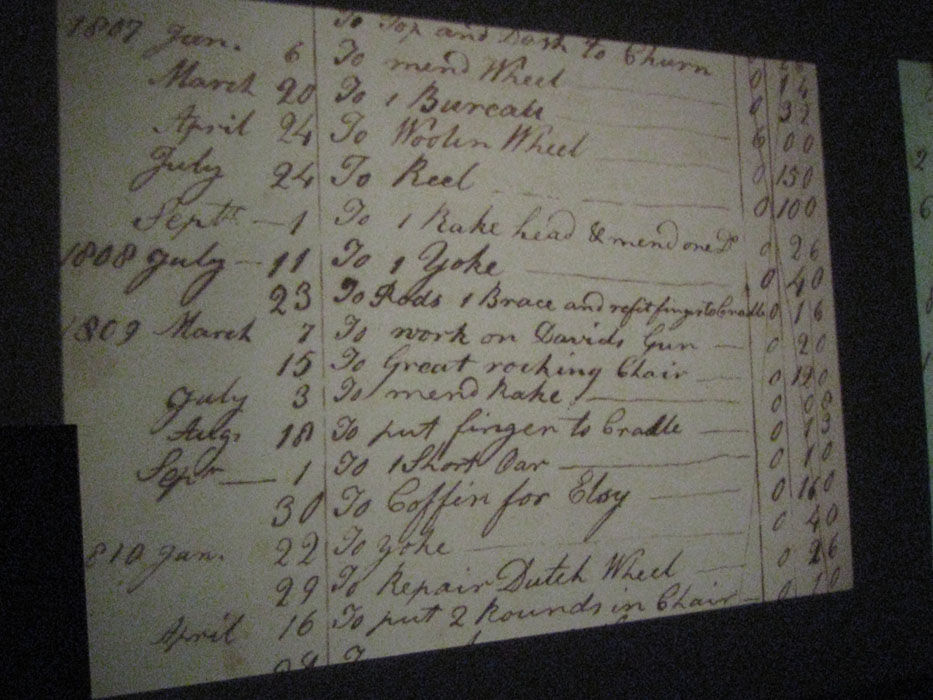 To Top and Dash to Churn 0 14
1807 Jan. 6 To mend Wheel 0 32
March 20 To 1 Bureau 6 00
April 24 To Woolin Wheel 0 150
July 24 To Reel 0 100
Septr — 1 To 1 Rake head & mend one Do 0 26
1808 July — 11 To 1 Yoke 0 40
23 To Rods 1 Brace and refit fings to Cradle 0 16
1809 March 7 To work on Davids Gun 0 20
15 To Great rocking Chair 0 120
July 3 To mend Rake 0 08
Augs 18 To put finger to Cradle 0 13
Sepr — 1 To 1 Short Oar 0 10
30 To Coffin for Elsy 0 160
810 Jan. 22 To yoke 0 40
29 To Repair Dutch Wheel 0 26
April 16 To put 2 Rounds in Chair 0 10
28 To